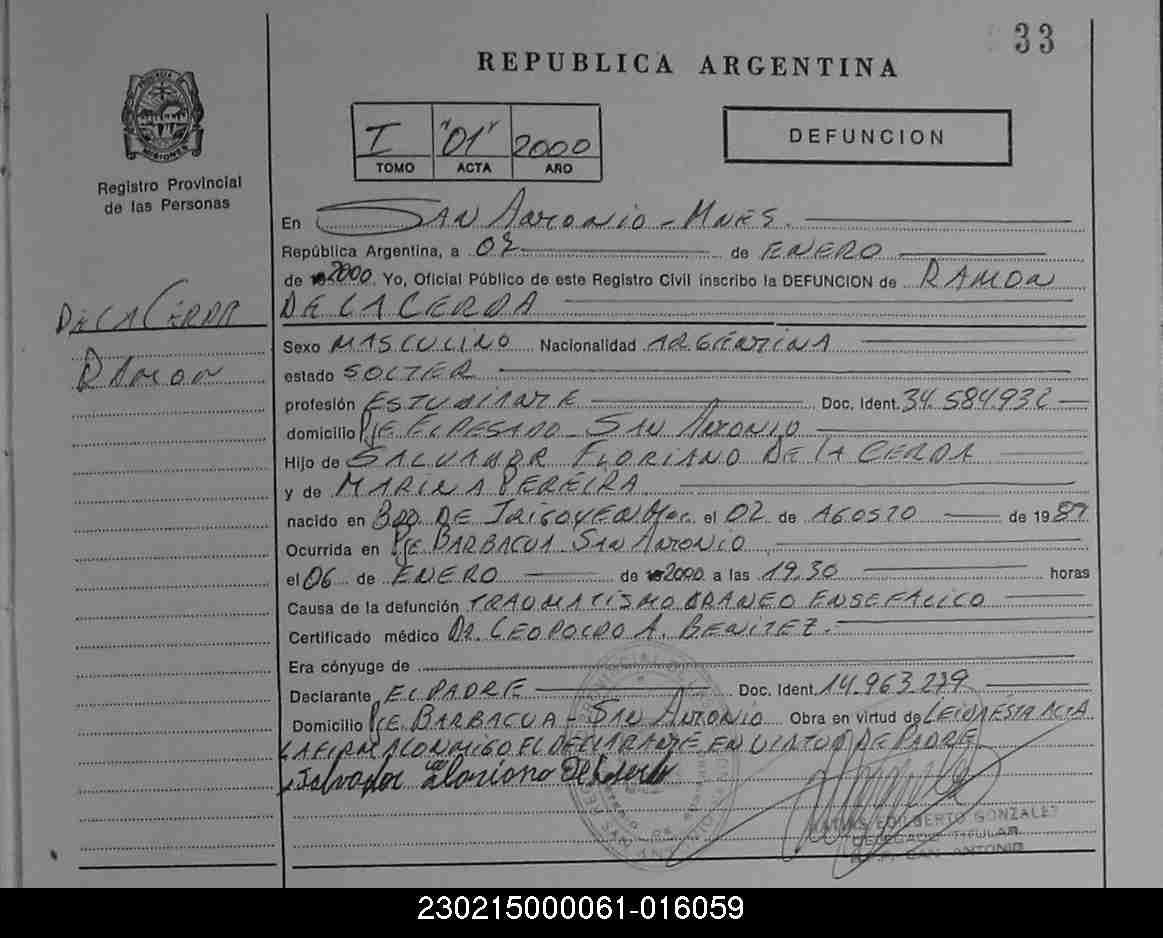 33
REPUBLICA ARGENTINA
PROVINCIA DE MISIONES
Registro Provincial
de las Personas
I "01" 2000
TOMO ACTA AÑO
DEFUNCION
En SAN ANTONIO - MNES.
República Argentina, a 07 de ENERO
de 2000. Yo, Oficial Público de este Registro Civil inscribo la DEFUNCION de RAMON
DE LA CERDA
DE LA CERDA
RAMON
Sexo MASCULINO Nacionalidad ARGENTINA
estado SOLTER
profesión ESTUDIANTE Doc. Ident. 34.584.932
domicilio PJE EL PESADO - SAN ANTONIO
Hijo de SALVADOR FLORIANO DE LA CERDA
y de MARINA PEREIRA
nacido en BDO. DE IRIGOYEN Mnes. el 02 de AGOSTO de 1989
Ocurrida en PJE BARBACUA SAN ANTONIO
el 06 de ENERO de 2000 a las 19,30 horas
Causa de la defunción TRAUMATISMO CRANEO ENSEFALICO
Certificado médico DR. LEOPOLDO A. BENITEZ.
Era cónyuge de
Declarante EL PADRE Doc. Ident. 14.963.279
Domicilio PJE. BARBACUA - SAN ANTONIO Obra en virtud de LEIDA ESTA ACTA
LA FIRMA CONMIGO EL DECLARANTE EN VIRTUD DE PADRE
Salvador Floriano De la Cerda
EDILBERTO GONZALEZ
DELEGADO TITULAR
R.P.P. SAN ANTONIO
230215000061-016059